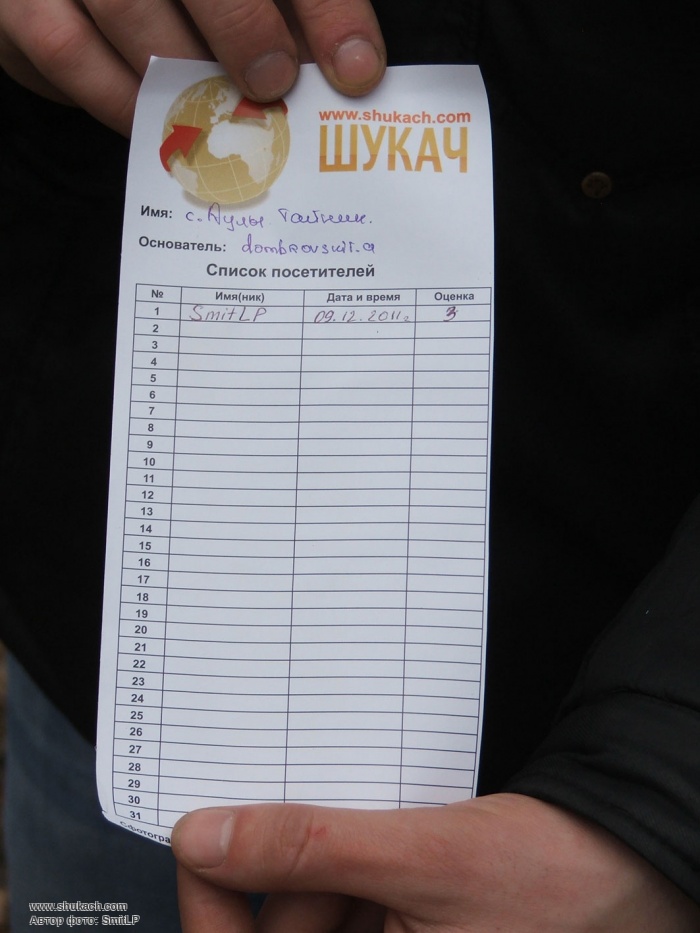 www.shukach.com
ШУКАЧ
Имя: с. Аулы Тайник.
Основатель: dombrovskii.a
Список посетителей
№ Имя(ник) Дата и время Оценка
1 SmitLP 09.12.2011г. 3
2
3
4
5
6
7
8
9
10
11
12
13
14
15
16
17
18
19
20
21
22
23
24
25
26
27
28
29
30
31
www.shukach.com
Автор фото: SmitLP